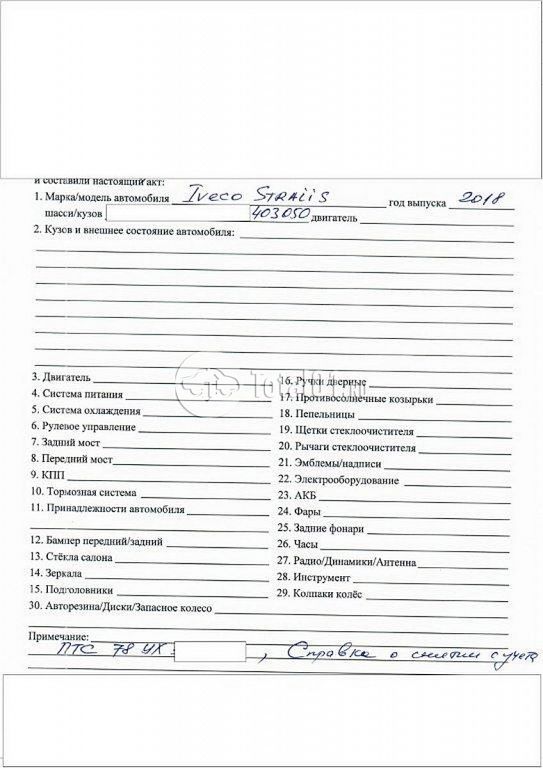 и составили настоящий акт:
1. Марка/модель автомобиля Iveco STRALIS год выпуска 2018
шасси/кузов 403050 двигатель
2. Кузов и внешнее состояние автомобиля:
3. Двигатель
4. Система питания
5. Система охлаждения
6. Рулевое управление
7. Задний мост
8. Передний мост
9. КПП
10. Тормозная система
11. Принадлежности автомобиля
12. Бампер передний/задний
13. Стёкла салона
14. Зеркала
15. Подголовники
16. Ручки дверные
17. Противосолнечные козырьки
18. Пепельницы
19. Щетки стеклоочистителя
20. Рычаги стеклоочистителя
21. Эмблемы/надписи
22. Электрооборудование
23. АКБ
24. Фары
25. Задние фонари
26. Часы
27. Радио/Динамики/Антенна
28. Инструмент
29. Колпаки колёс
30. Авторезина/Диски/Запасное колесо
Примечание:
ПТС 78 УХ , Справка о снятии с учета
Total01.ru